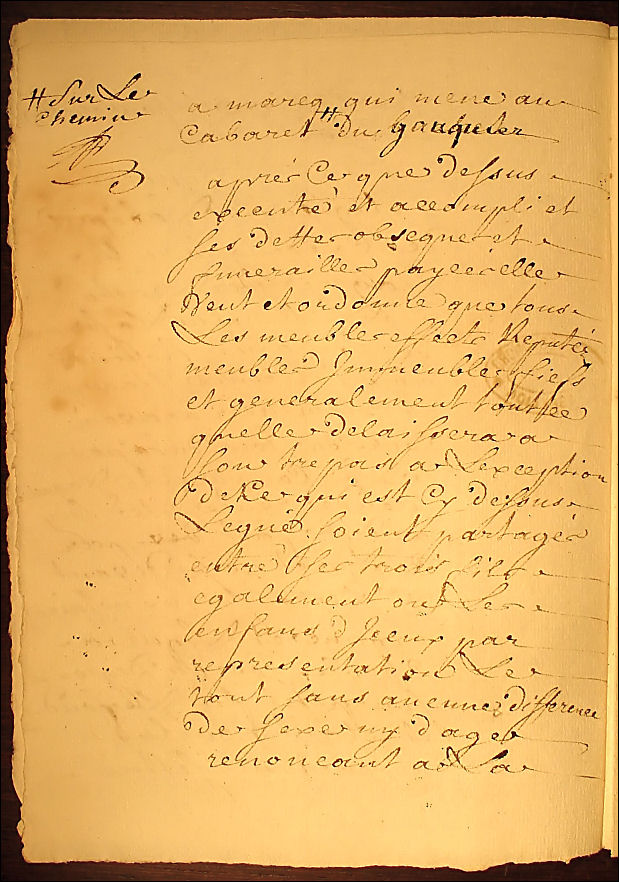 # Sur Le
chemin
a marcq qui mene au
Cabaret # du
aprés Ce que dessus
executé et accompli et
ses dettes obseques et
funerailles payeés elle
Veut et ordonne que tous
Les meubles effects Reputés
meubles Immeubles fiefs
et generalement tout ce
quelle delaissera a
son trepas a Lexception
de Ce qui est Cy dessus
Legué soient partagés
entre ses trois fils
egalement ou Les
enfans d Iceux par
representation Le
tout sans aucune difference
de sexe ny d age
renoncant a La